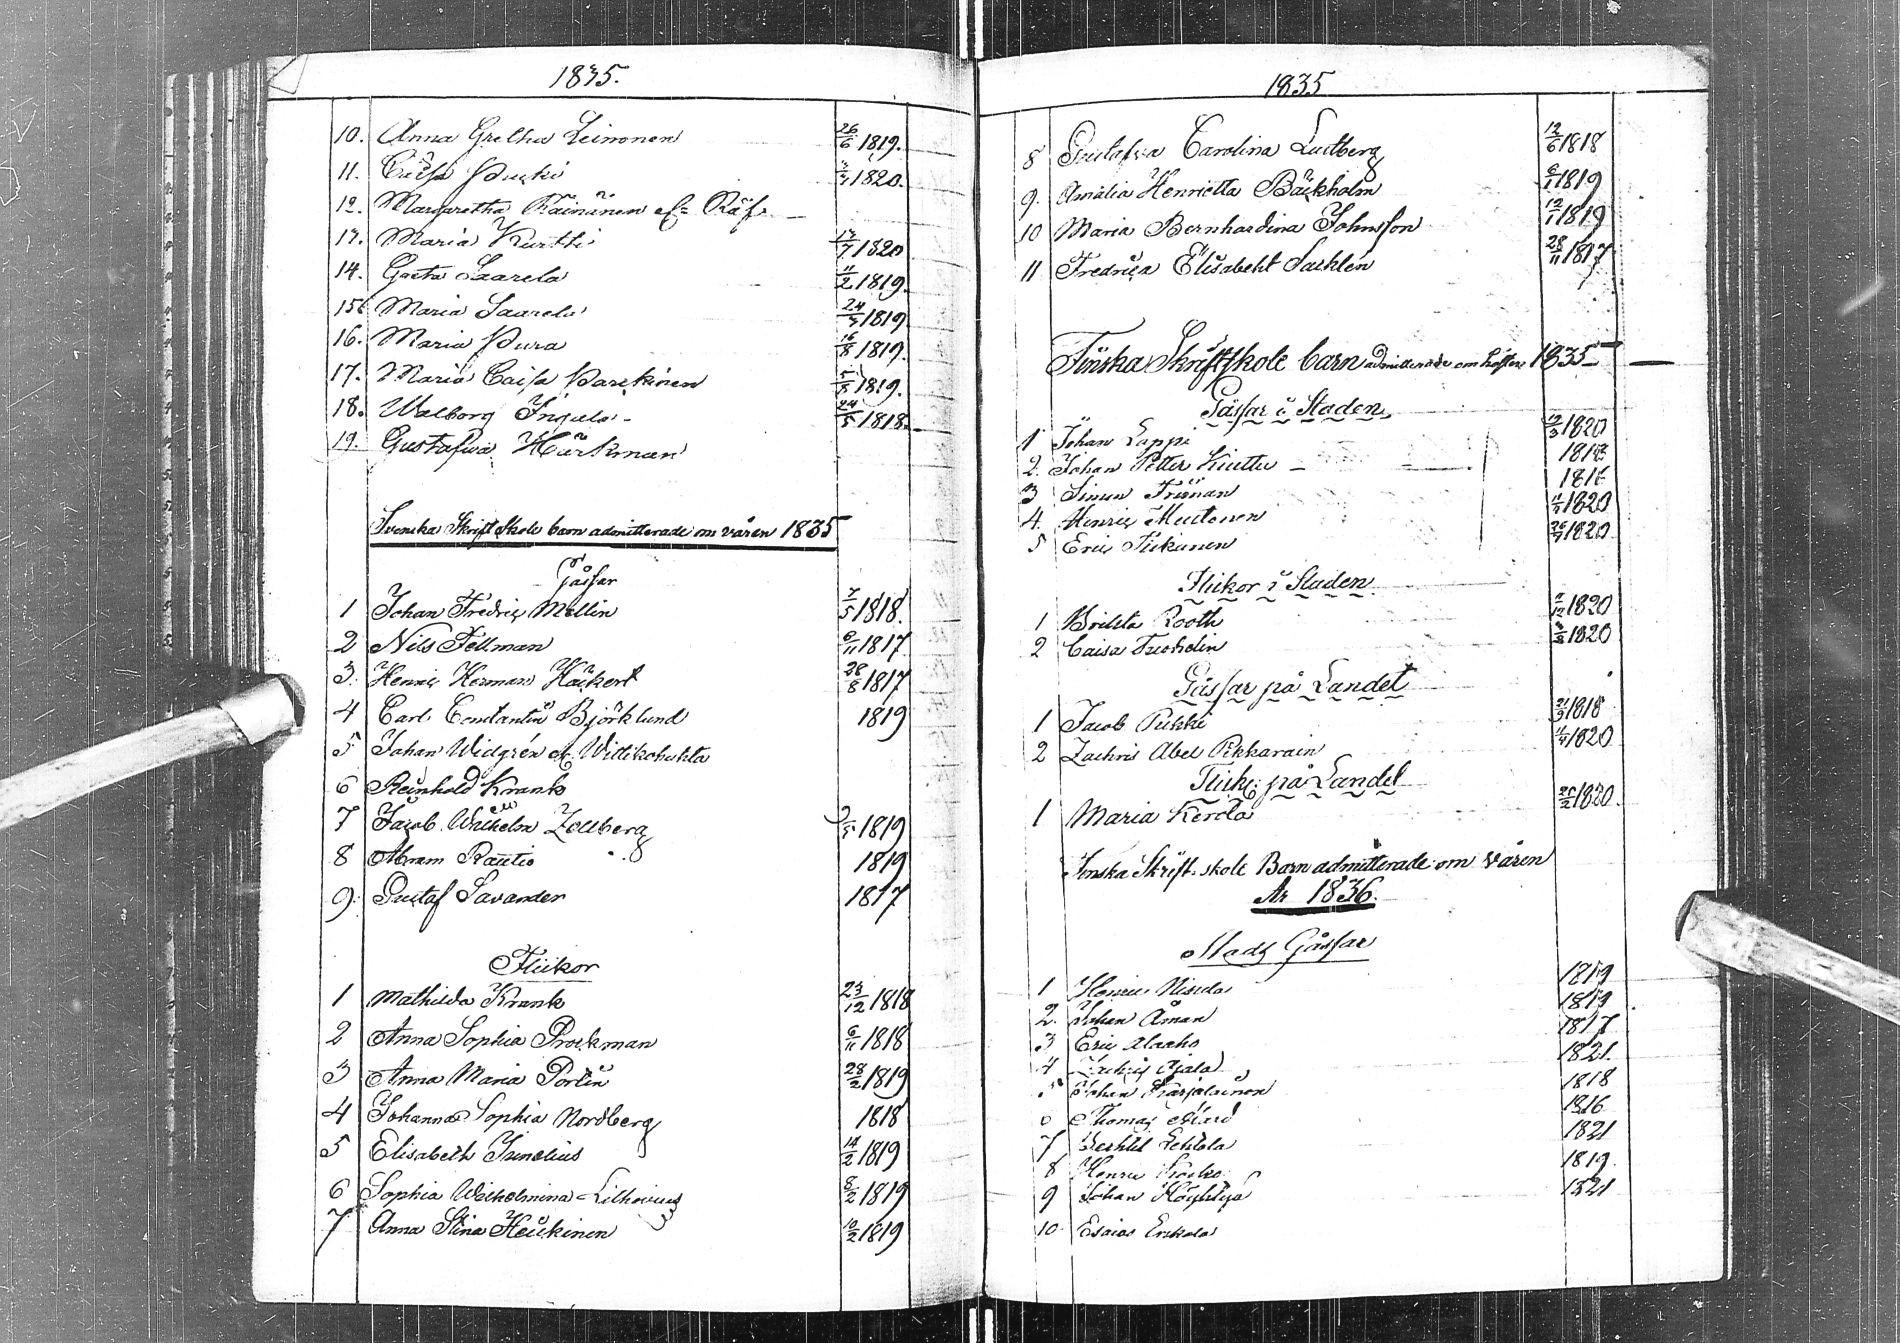 1835.
10. Anna Gretha Leinonen 26/6 1819.
11. Caisa 1820.
12. Margaretha Räinänen el. Räf
13. Maria Kurtti 13/7 1820
14. Greta Saarela 11/2 1819.
15 Maria Saarela 24/5 1819
16. Maria Pura 16/8 1819.
17. Maria Caisa 5/8 1819.
18. Walborg Ingulo 24/5 1818.
19. Gustafwa Härkman
Svenska Skrift Skole barn admitterade om våren 1835
Gåssar
1 Johan Fredric Mellin 7/5 1818.
2 Nils Fellman 6/11 1817
3. Henric Herman Häckert 28/8 1817
4 Carl Constantin Björklund 1819
5 Johan Widgrén el. Wittikohuhta
6 Reinhold Krank
7 Jacob Wilhelm Zellberg 1819
8 Abram Rautio 1819
9. Gustaf Savander 1817
Flickor
1 Mathilda Krank 23/12 1818
2 Anna Sophia Brockman 6/11 1818
3 Anna Maria Portin 28/2 1819
4 Johanna Sophia Nordberg 1818
5 Elisabeth Simelius 14/2 1819
6 Sophia Wilhelmina Lithovius 8/2 1819
7 Anna Stina Heickinen 10/2 1819
1835
8 Gustafva Carolina Lustberg 12/6 1818
9. Amalia Henrietta Bäckholm 6/1 1819
10 Maria Bernhardina Johnsson 12/1 1819
11 Fredrica Elisabeht Sachlén 28/11 1817
Finska Skriftskole barn admitterade om hösten 1835
Gåssar i Staden
1 Johan Lappi 12/3 1820
2. Johan Petter
3 Simon 1816
4. Henric Mustonen 1820
5 Eric Tiikanen 1820
Flickor i Staden
1 Brikta Rooth 1820
2 Caisa 1820
Gåssar på Landet
1 Jacob Pukki 1818
2 Zachris Abel Pikkarain 1820
Flick: på Landet
1 Maria Kerola 1820.
Finska Skrift skole Barn admitterade om våren
År 1836.
Stads Gåssar
1 Henric 1819
2. Johan Åman 1819
3 Eric Alaaho 1817
4 Zachris Ojala 1821.
5 Johan Karjalainen 1818
6 Thomas 1816
7 Lehtola 1821
8 Henric 1819.
9 Johan Höyhtyä 1821
10 Esaias Erkkola